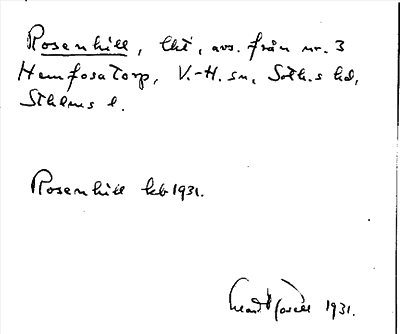 Rosenhill, lht, avs. från nr. 3
Hemfosatorp, V.-H. sn, Soth.s hd,
Sthlms l.
Rosenhill kb 1931.
1931.